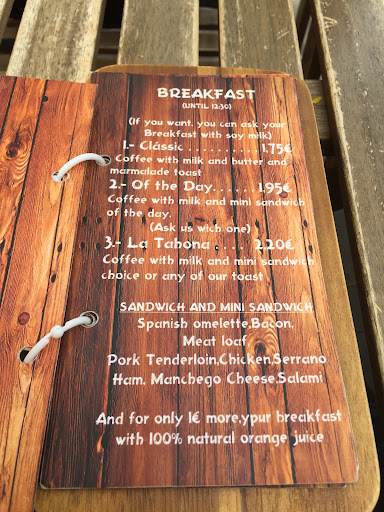 BREAKFAST
(UNTIL 12:30)
(If you want, you can ask your
Breakfast with soy milk)
1.- Clássic . . . . . . . . . 1.75€
Coffee with milk and butter and
marmalade toast
2.- Of the Day. . . . . . . 1.95€
Coffee with milk and mini sandwich
of the day.
(Ask us wich one)
3.- La Tahona . . . . 2.20€
Coffee with milk and mini sandwich
choice or any of our toast
SANDWICH AND MINI SANDWICH
Spanish omelette,Bacon,
Meat loaf,
Pork Tenderloin,Chicken,Serrano
Ham, Manchego Cheese,Salami
And for only 1€ more,ypur breakfast
with 100% natural orange juice